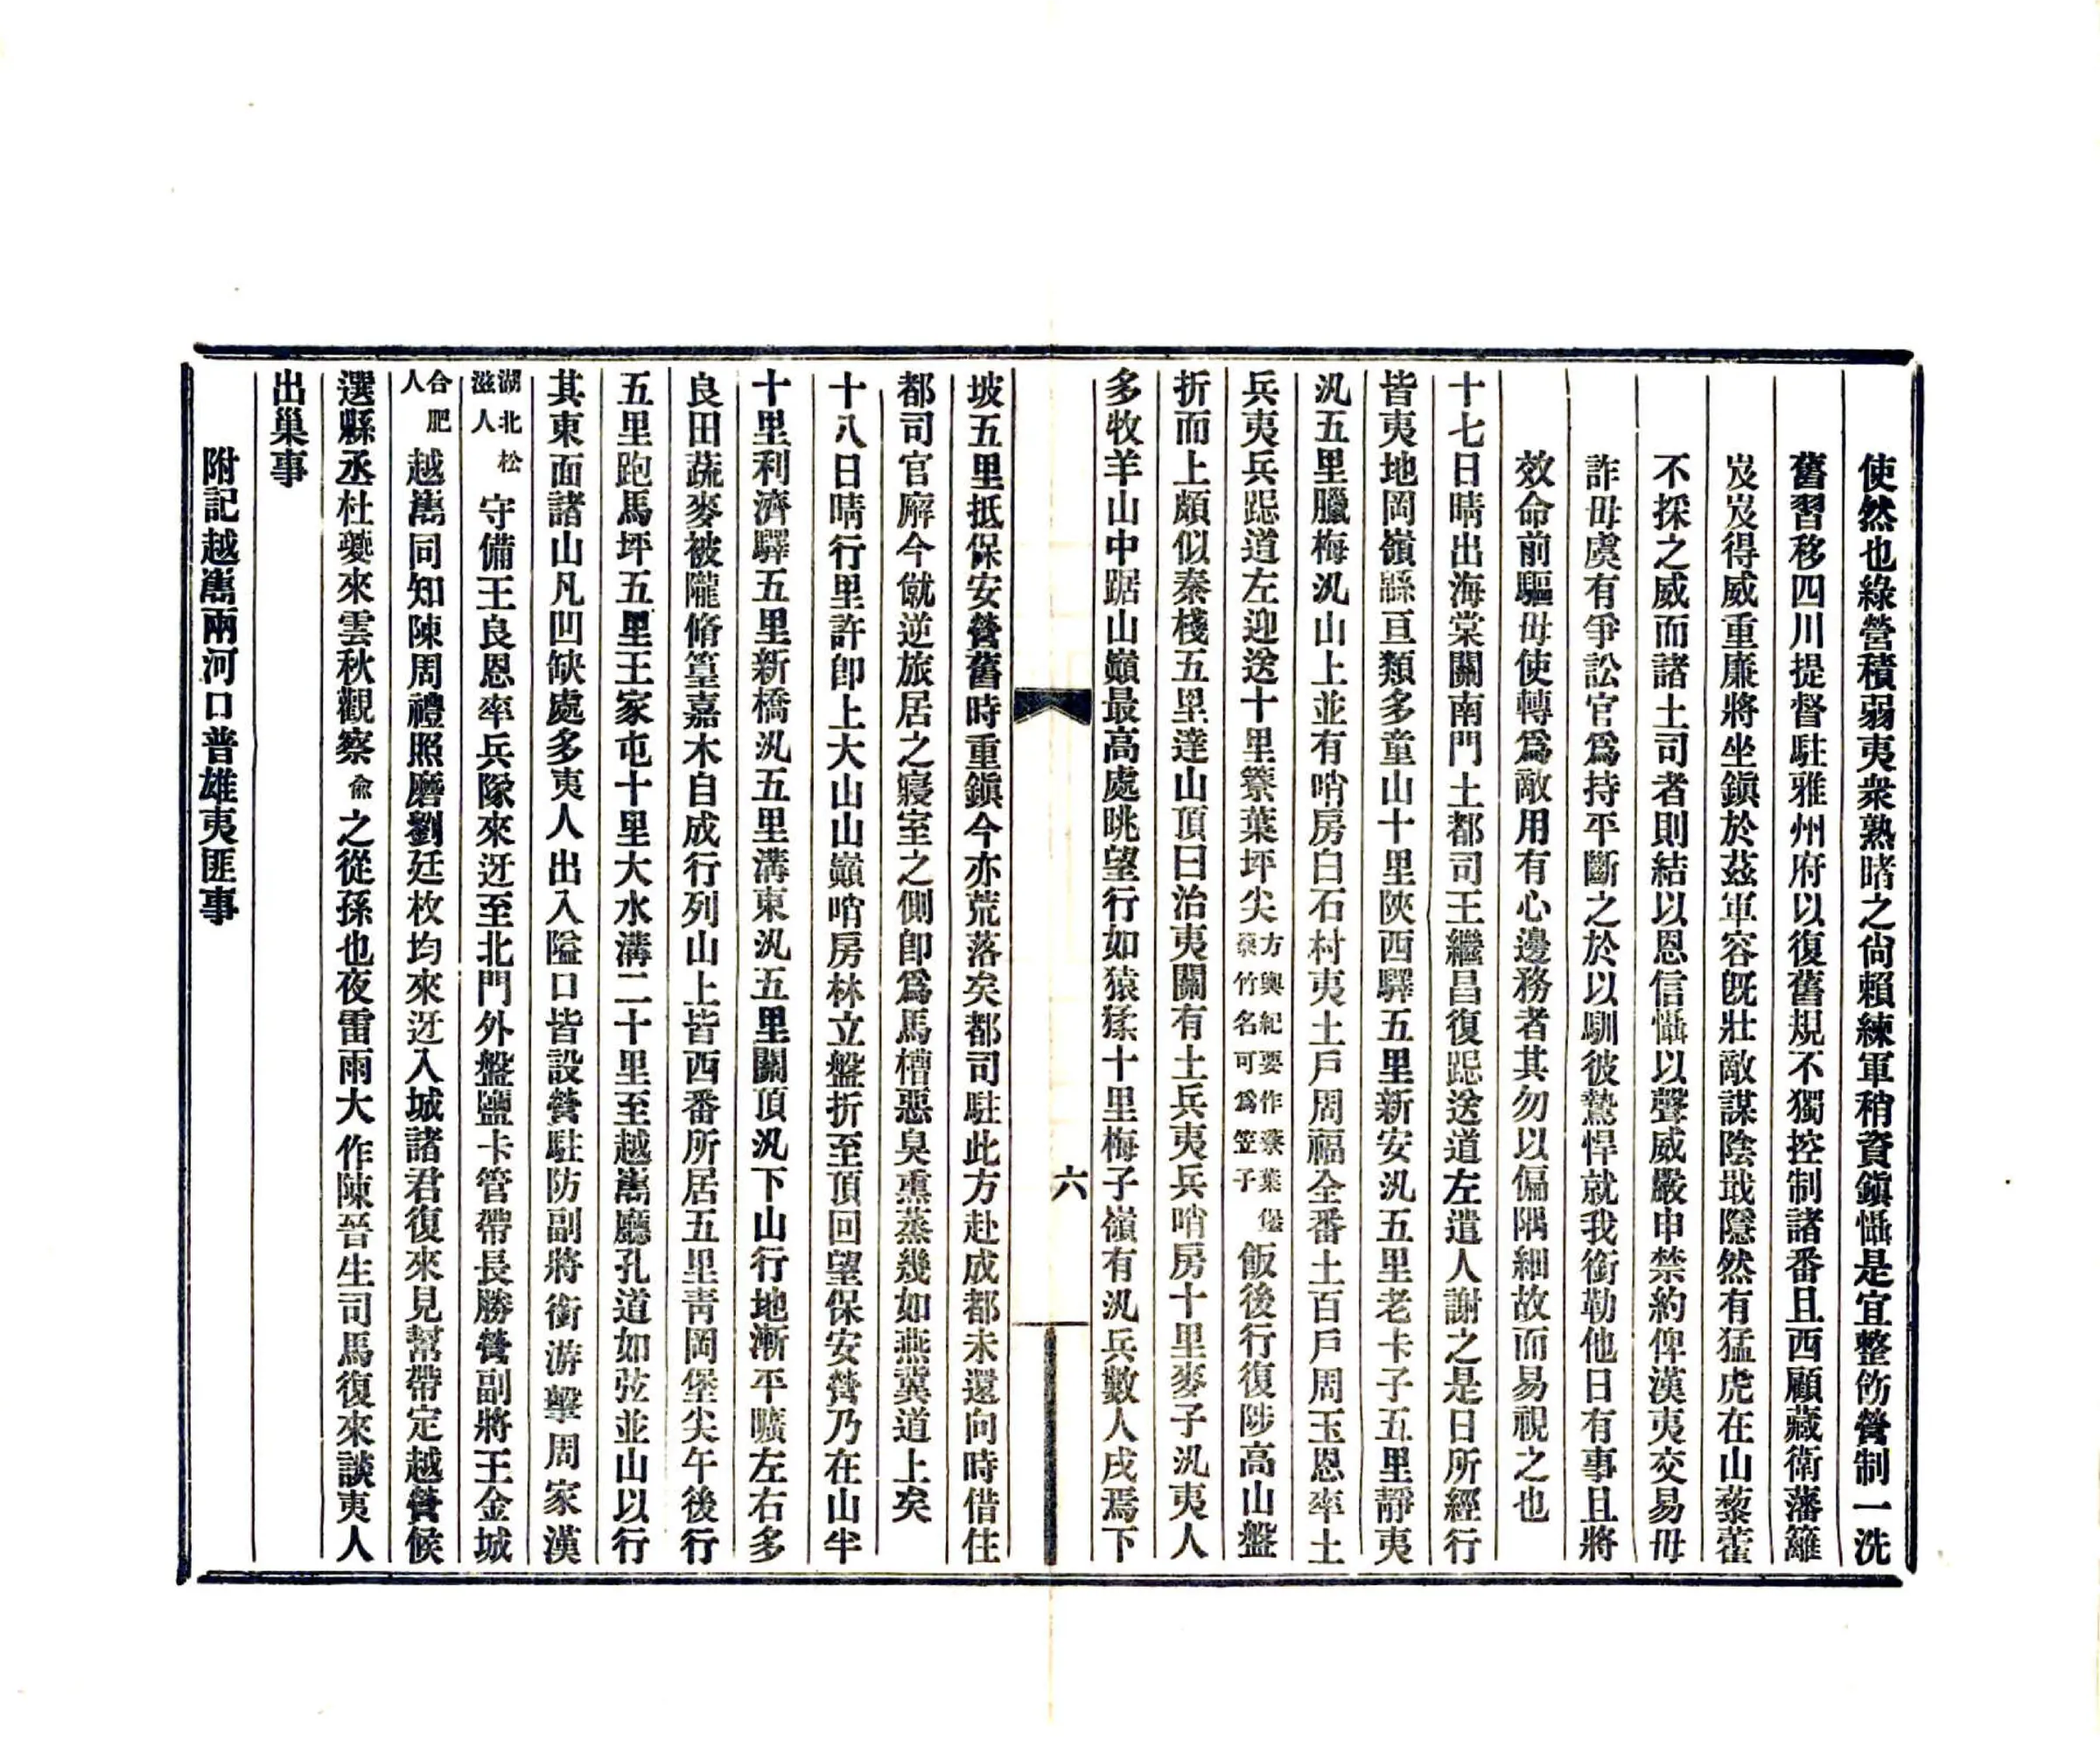 使然也綠營積弱夷衆熟睹之尙賴練軍稍資鎭懾是宜整飭營制一洗
舊習移四川提督駐雅州府以復舊規不獨控制諸番且西顧藏衛藩籬
岌岌得威重廉將坐鎭於茲軍容旣壯敵謀陰戢隱然有猛虎在山藜藿
不採之威而諸土司者則結以恩信懾以聲威嚴申禁約俾漢夷交易毋
詐毋虞有爭訟官爲持平斷之於以馴彼鷙悍就我銜勒他日有事且將
效命前驅毋使轉爲敵用有心邊務者其勿以偏隅細故而易視之也
十七日晴出海棠關南門土都司王繼昌復跽送道左遣人謝之是日所經行
皆夷地岡嶺緜亘類多童山十里陝西驛五里新安汛五里老卡子五里靜夷
汛五里臘梅汛山上並有哨房白石村夷土戶周福全番土百戶周玉恩率土
兵夷兵跽道左迎送十里簝葉坪尖方輿紀要作蓼葉堡簝竹名可爲笠子飯後行復陟高山盤
折而上頗似秦棧五里達山頂曰治夷關有土兵夷兵哨房十里麥子汛夷人
多牧羊山中踞山巔最高處眺望行如猿猱十里梅子嶺有汛兵數人戍焉下
六
坡五里抵保安營舊時重鎭今亦荒落矣都司駐此方赴成都未還向時借住
都司官廨今僦逆旅居之寢室之側卽爲馬槽惡臭熏蒸幾如燕冀道上矣
十八日晴行里許卽上大山山巔哨房林立盤折至頂回望保安營乃在山半
十里利濟驛五里新橋汛五里溝東汛五里關頂汛下山行地漸平曠左右多
良田蔬麥被隴脩篁嘉木自成行列山上皆西番所居五里靑岡堡尖午後行
五里跑馬坪五里王家屯十里大水溝二十里至越嶲廳孔道如弦並山以行
其東面諸山凡凹缺處多夷人出入隘口皆設營駐防副將銜游擊周家漢
湖北松滋人守備王良恩率兵隊來迓至北門外盤鹽卡管帶長勝營副將王金城
合肥人越嶲同知陳周禮照磨劉廷枚均來迓入城諸君復來見幫帶定越營候
選縣丞杜夔來雲秋觀察俞之從孫也夜雷雨大作陳晉生司馬復來談夷人
出巢事
附記越嶲兩河口普雄夷匪事